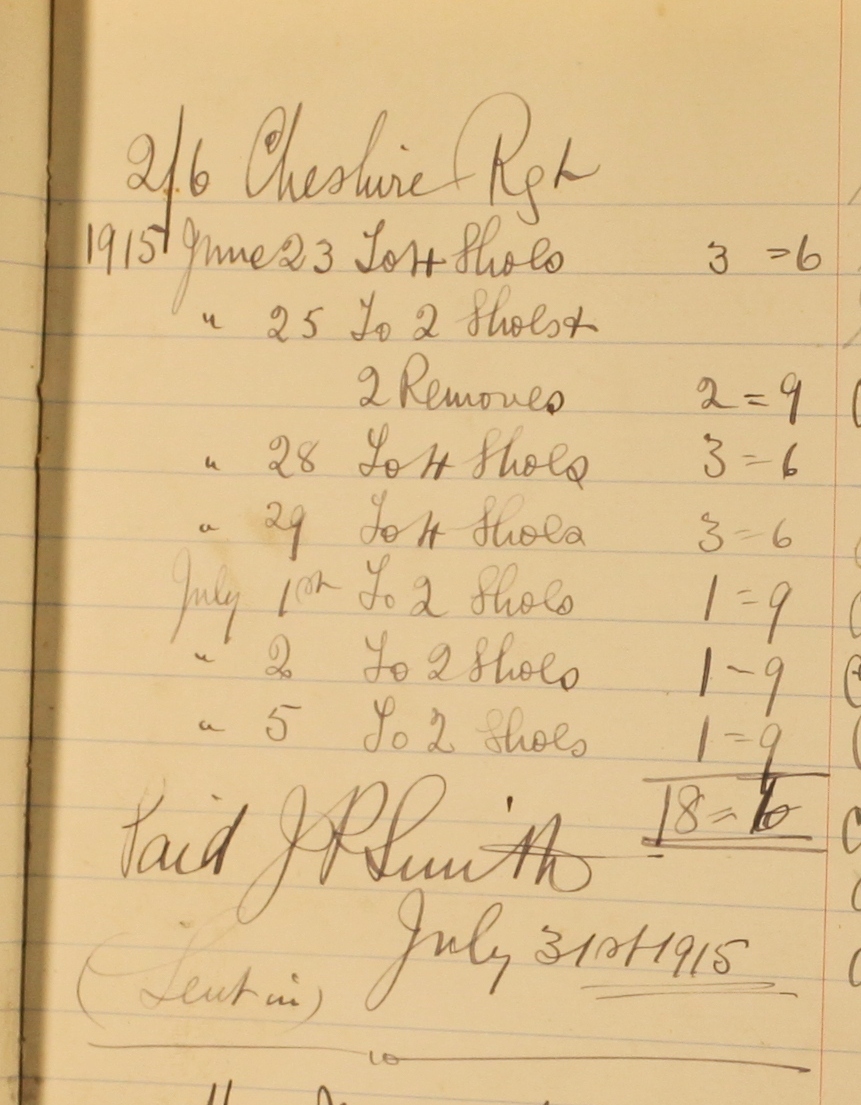 2/6 Cheshire Rgt
1915 June 23 To 4 Shoes 3 = 6
" 25 To 2 Shoes +
2 Removes 2 = 9
" 28 To 4 Shoes 3 = 6
" 29 To 4 Shoes 3 = 6
July 1st To 2 Shoes 1 = 9
" 2 To 2 Shoes 1 - 9
" 5 To 2 Shoes 1 = 9
18 = 6
Paid J P Smith
July 31st 1915
(Sent in)